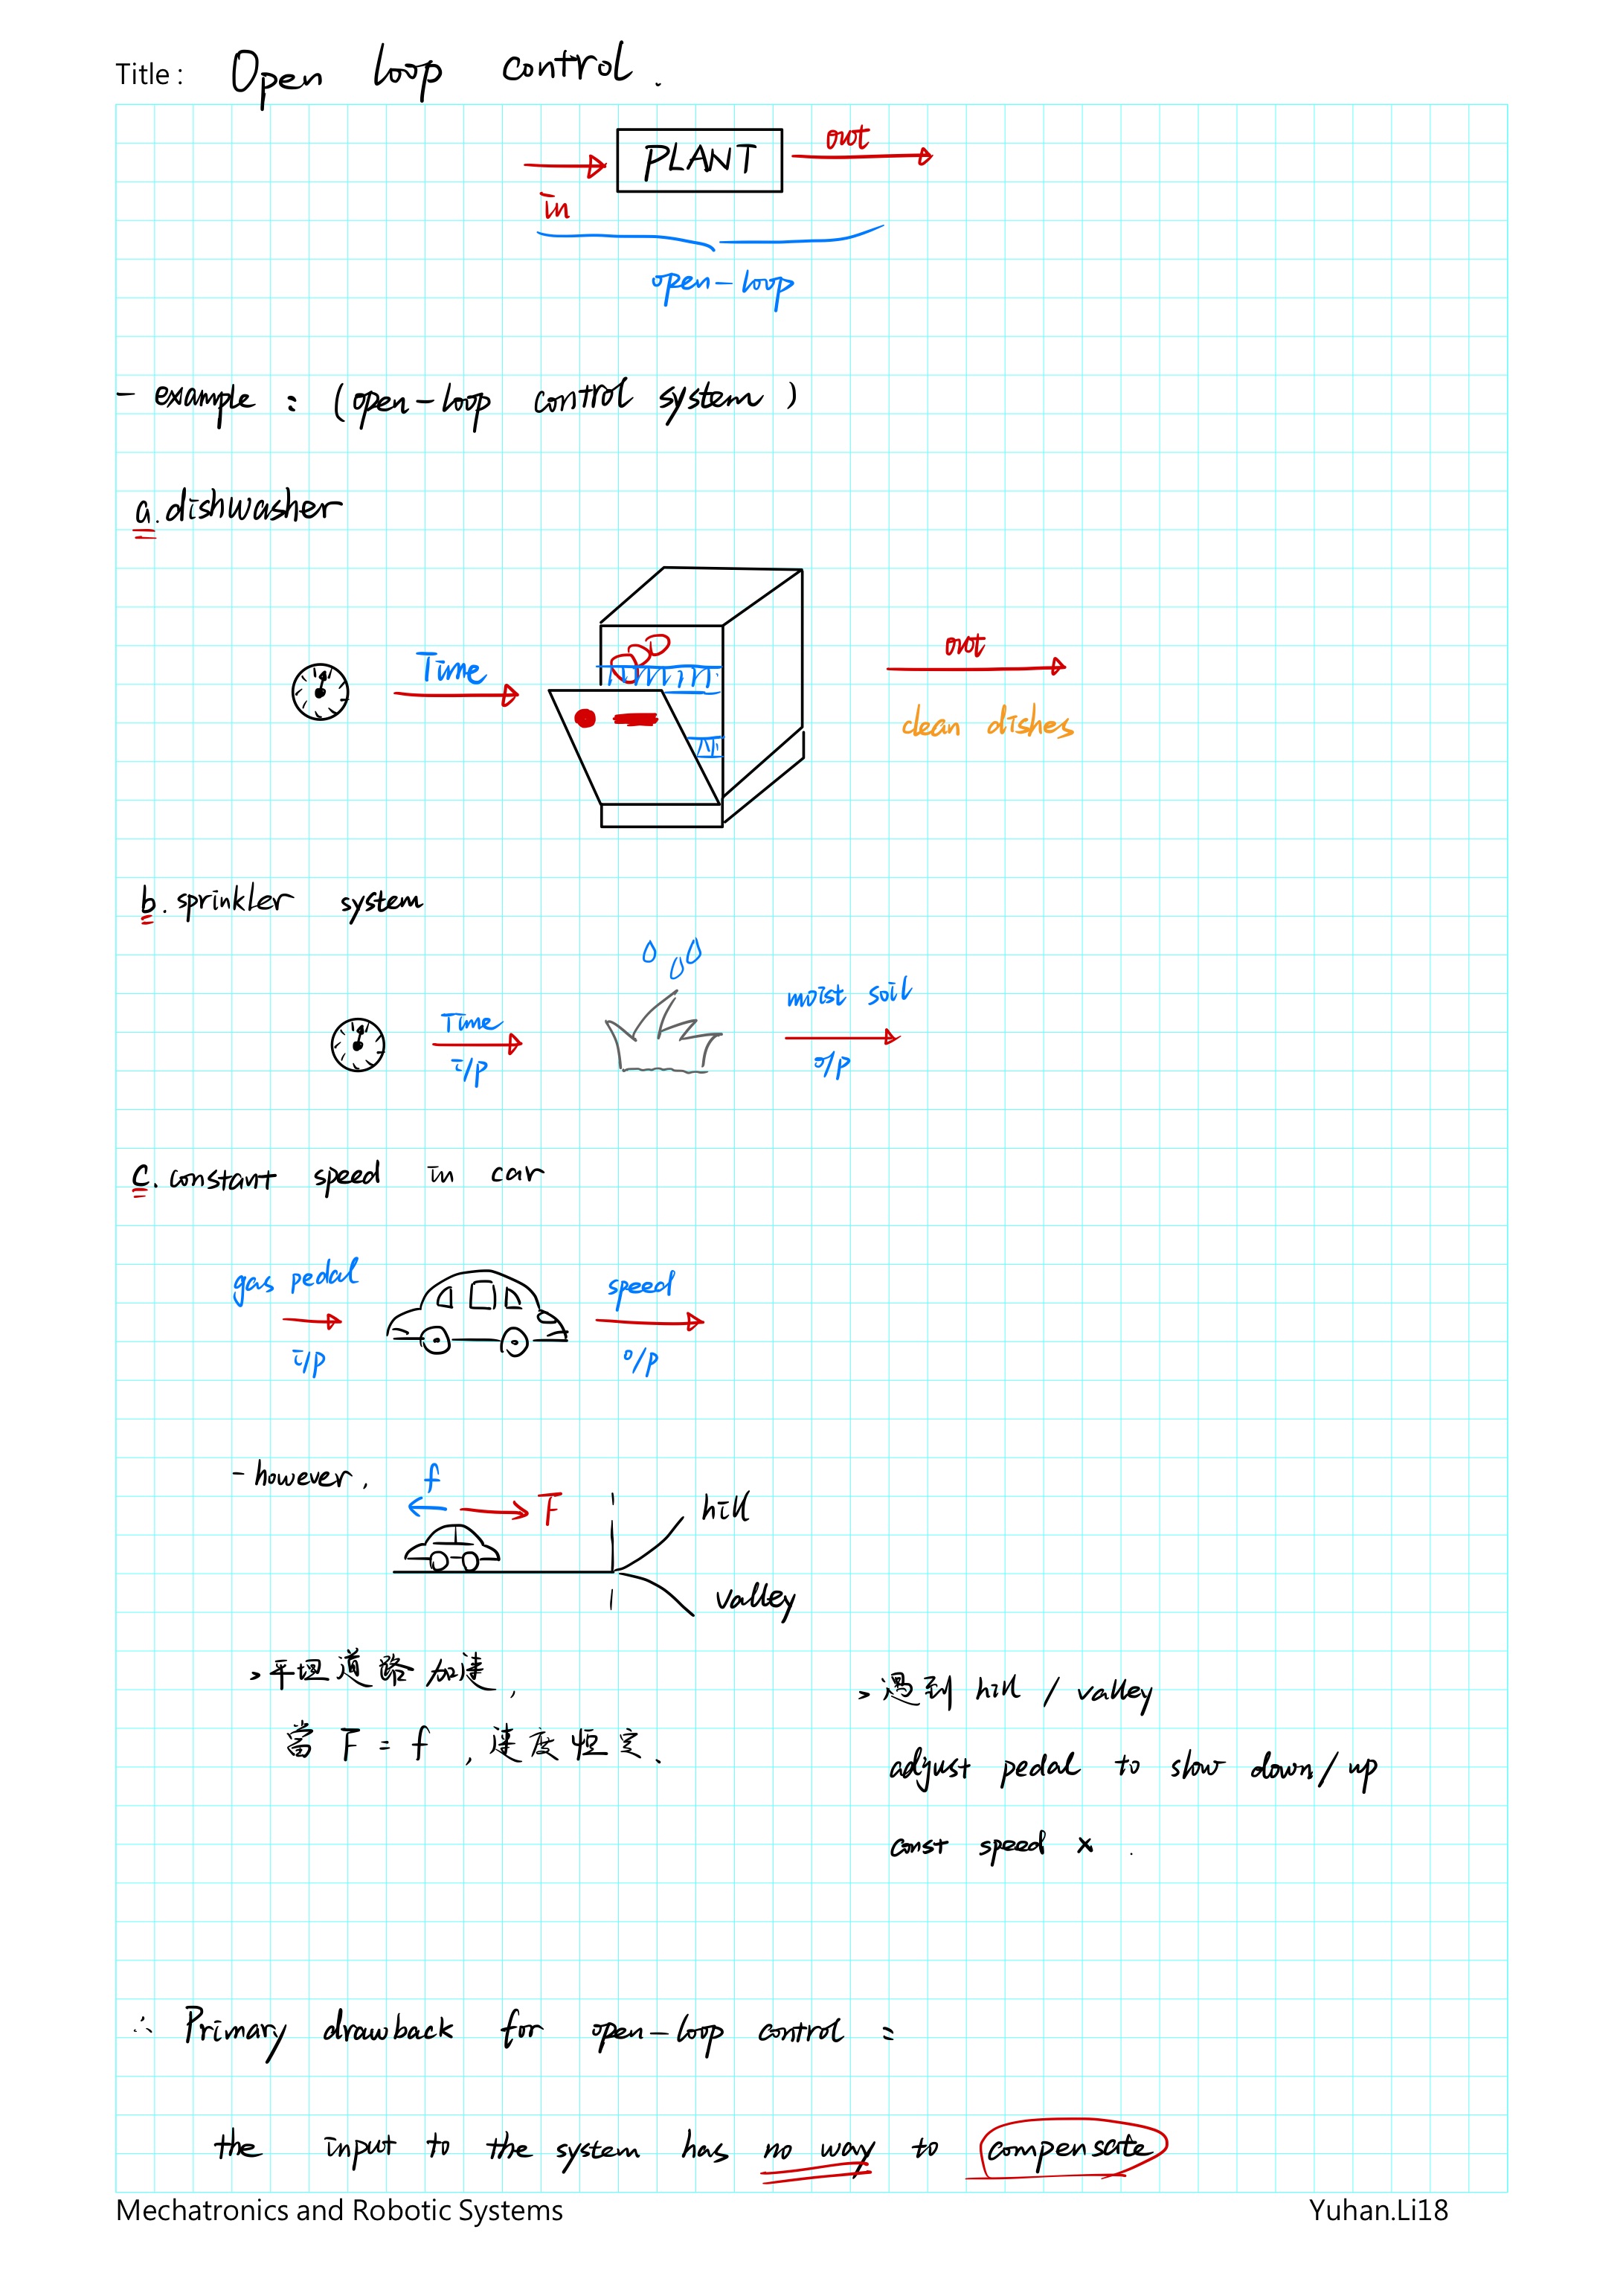 Title : Open loop control.
PLANT
out
in
open-loop
- example : (open-loop control system)
a. dishwasher
Time
out
clean dishes
b. sprinkler system
Time
i/p
moist soil
o/p
c. constant speed in car
gas pedal
i/p
speed
o/p
- however,
f
F
hill
valley
> 平坦道路加速,
當 F = f , 速度恒定、
> 遇到 hill / valley
adjust pedal to slow down / up
const speed x .
∴ Primary drawback for open-loop control :
the input to the system has no way to compensate
Mechatronics and Robotic Systems
Yuhan.Li18